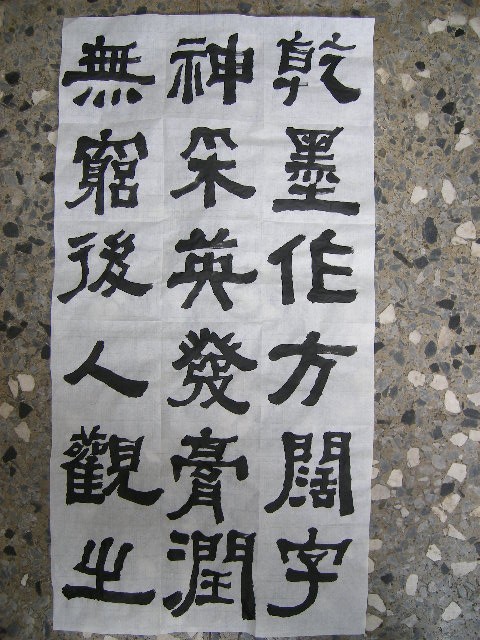 乾墨作方闊字
神采英發膏潤
無窮後人觀之